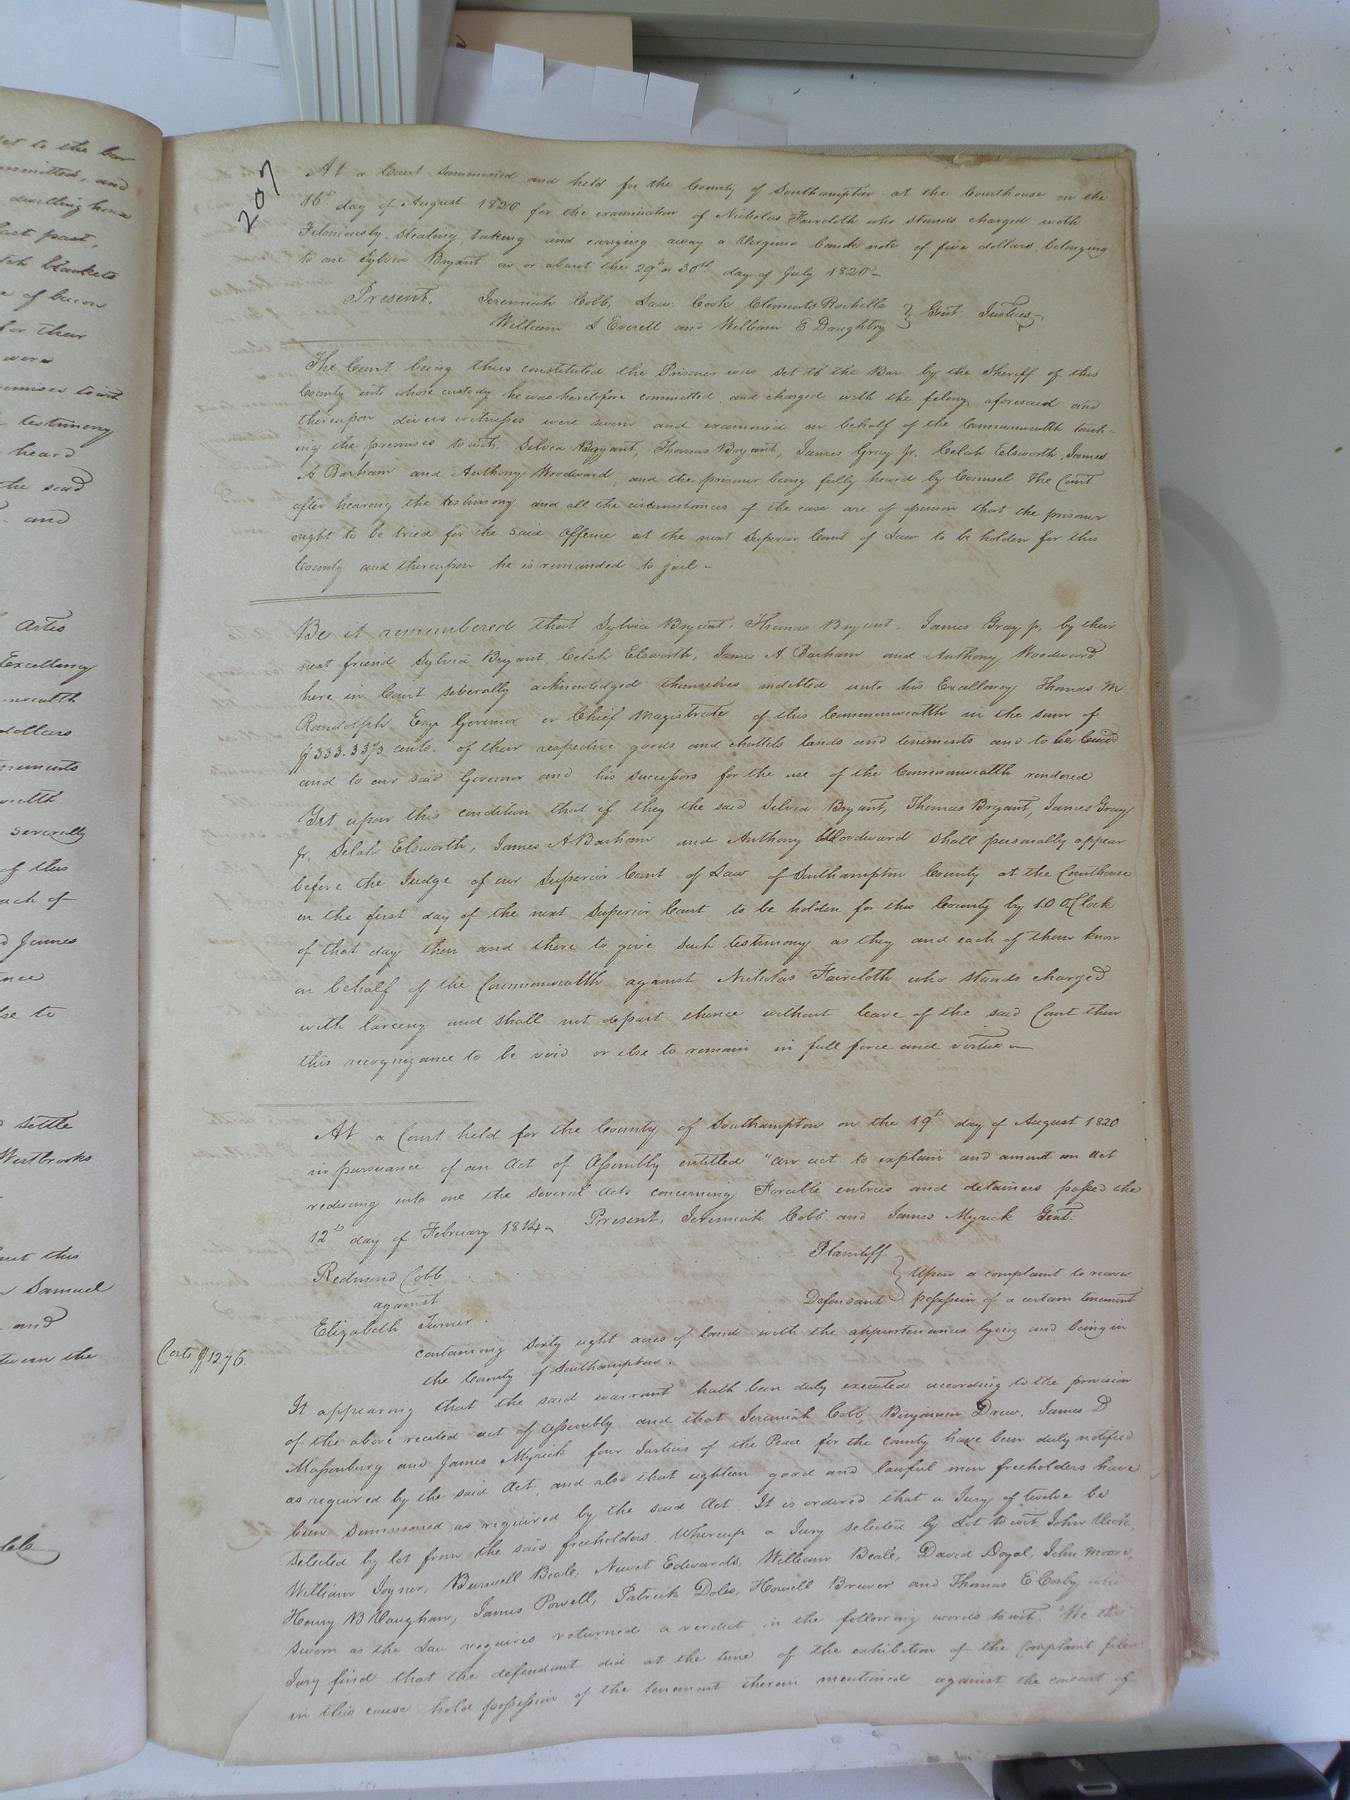 207
At a Court Summoned and held for the County of Southampton at the Courthouse on the
16th day of August 1820 for the examination of Nicholas Faircloth who stands charged with
Feloniously stealing taking and carrying away a Virginia bank note of five dollars belonging
to one Sylvia Bryant on or about the 29th or 30th day of July 1820
Present, Jeremiah Cobb, Law: Cook Clements Rochelle
William S Everett and William E Daughtry } Gent Justices
The Court being thus constituted the Prisoner was set to the Bar by the Sheriff of this
County into whose custody he was heretofore committed, and charged with the felony aforesaid and
thereupon divers witnesses were sworn and examined on behalf of the Commonwealth touch-
ing the premises towit, Silvia Bryant, Thomas Bryant, James Gray Jr. Celah Elsworth, James
A Barham and Anthony Woodward, and the prisoner being fully heard by Counsel The Court
after hearing the testimony and all the circumstances of the case are of opinion that the prisoner
ought to be tried for the said Offence at the next Superior Court of Law to be holden for this
County and thereupon he is remanded to jail
Be it remembered that Sylvia Bryant, Thomas Bryant, James Gray jr by their
next friend Sylvia Bryant, Celah Elsworth, James A Barham and Anthony Woodward
here in Court severally acknowledged themselves indebted unto his Excellency Thomas M
Randolph Esqr Governor or Chief Magistrate of this Commonwealth in the sum of
$333.33⅓ cents. of their respective goods and chattels lands and tenements and to be levied
and to our said Governor and his successors for the use of the Commonwealth rendered
Yet upon this condition that if they the said Silvia Bryant, Thomas Bryant, James Gray
Jr, Selah Elsworth, James A Barham and Anthony Woodward shall personally appear
before the Judge of our Superior Court of Law of Southampton County at the Courthouse
on the first day of the next Superior Court to be holden for this County by 10 OClock
of that day then and there to give such testimony as they and each of them know
on behalf of the Commonwealth against Nicholas Faircloth who stands charged
with larceny and shall not depart thence without leave of the said Court then
this recognizance to be void or else to remain in full force and virtue
At a Court held for the County of Southampton on the 19th day of August 1820
in pursuance of an Act of Assembly entitled "an act to explain and amend an Act
reducing into one the several Acts concerning Forcible entries and detainers passed the
12th day of February 1814 Present, Jeremiah Cobb and James Myrick Gent.
Redmond Cobb Plaintiff
against } Upon a complaint to recover
Elizabeth Turner. Defendant possession of a certain tenement
containing sixty eight acres of land with the appurtenances lying and being in
Costs $12.76.
the County of Southampton.
It appearing that the said warrant hath been duly executed according to the provision
of the above recited act of Assembly and that Jeremiah Cobb, Benjamin Drew, James D
Massenburg and James Myrick four Justices of the Peace for the county have been duly notified
as required by the said Act, and also that eighteen good and lawful men freeholders have
been summoned as required by the said Act. It is ordered that a Jury of twelve be
selected by lot from the said freeholders. Whereup a Jury selected by Lot to wit John
William Joyner, Burwell Beale, Newit Edwards William Beale, David Doyal, John Moore,
Henry B Vaughan, James Powell, Patrick Doles, Howell Brewer and Thomas E
sworn as the Law requires returned a verdict in the following words to wit. "We the
Jury find that the defendant did at the time of the exhibition of the complaint filed
in this cause hold possession of the tenement therein mentioned against the consent of